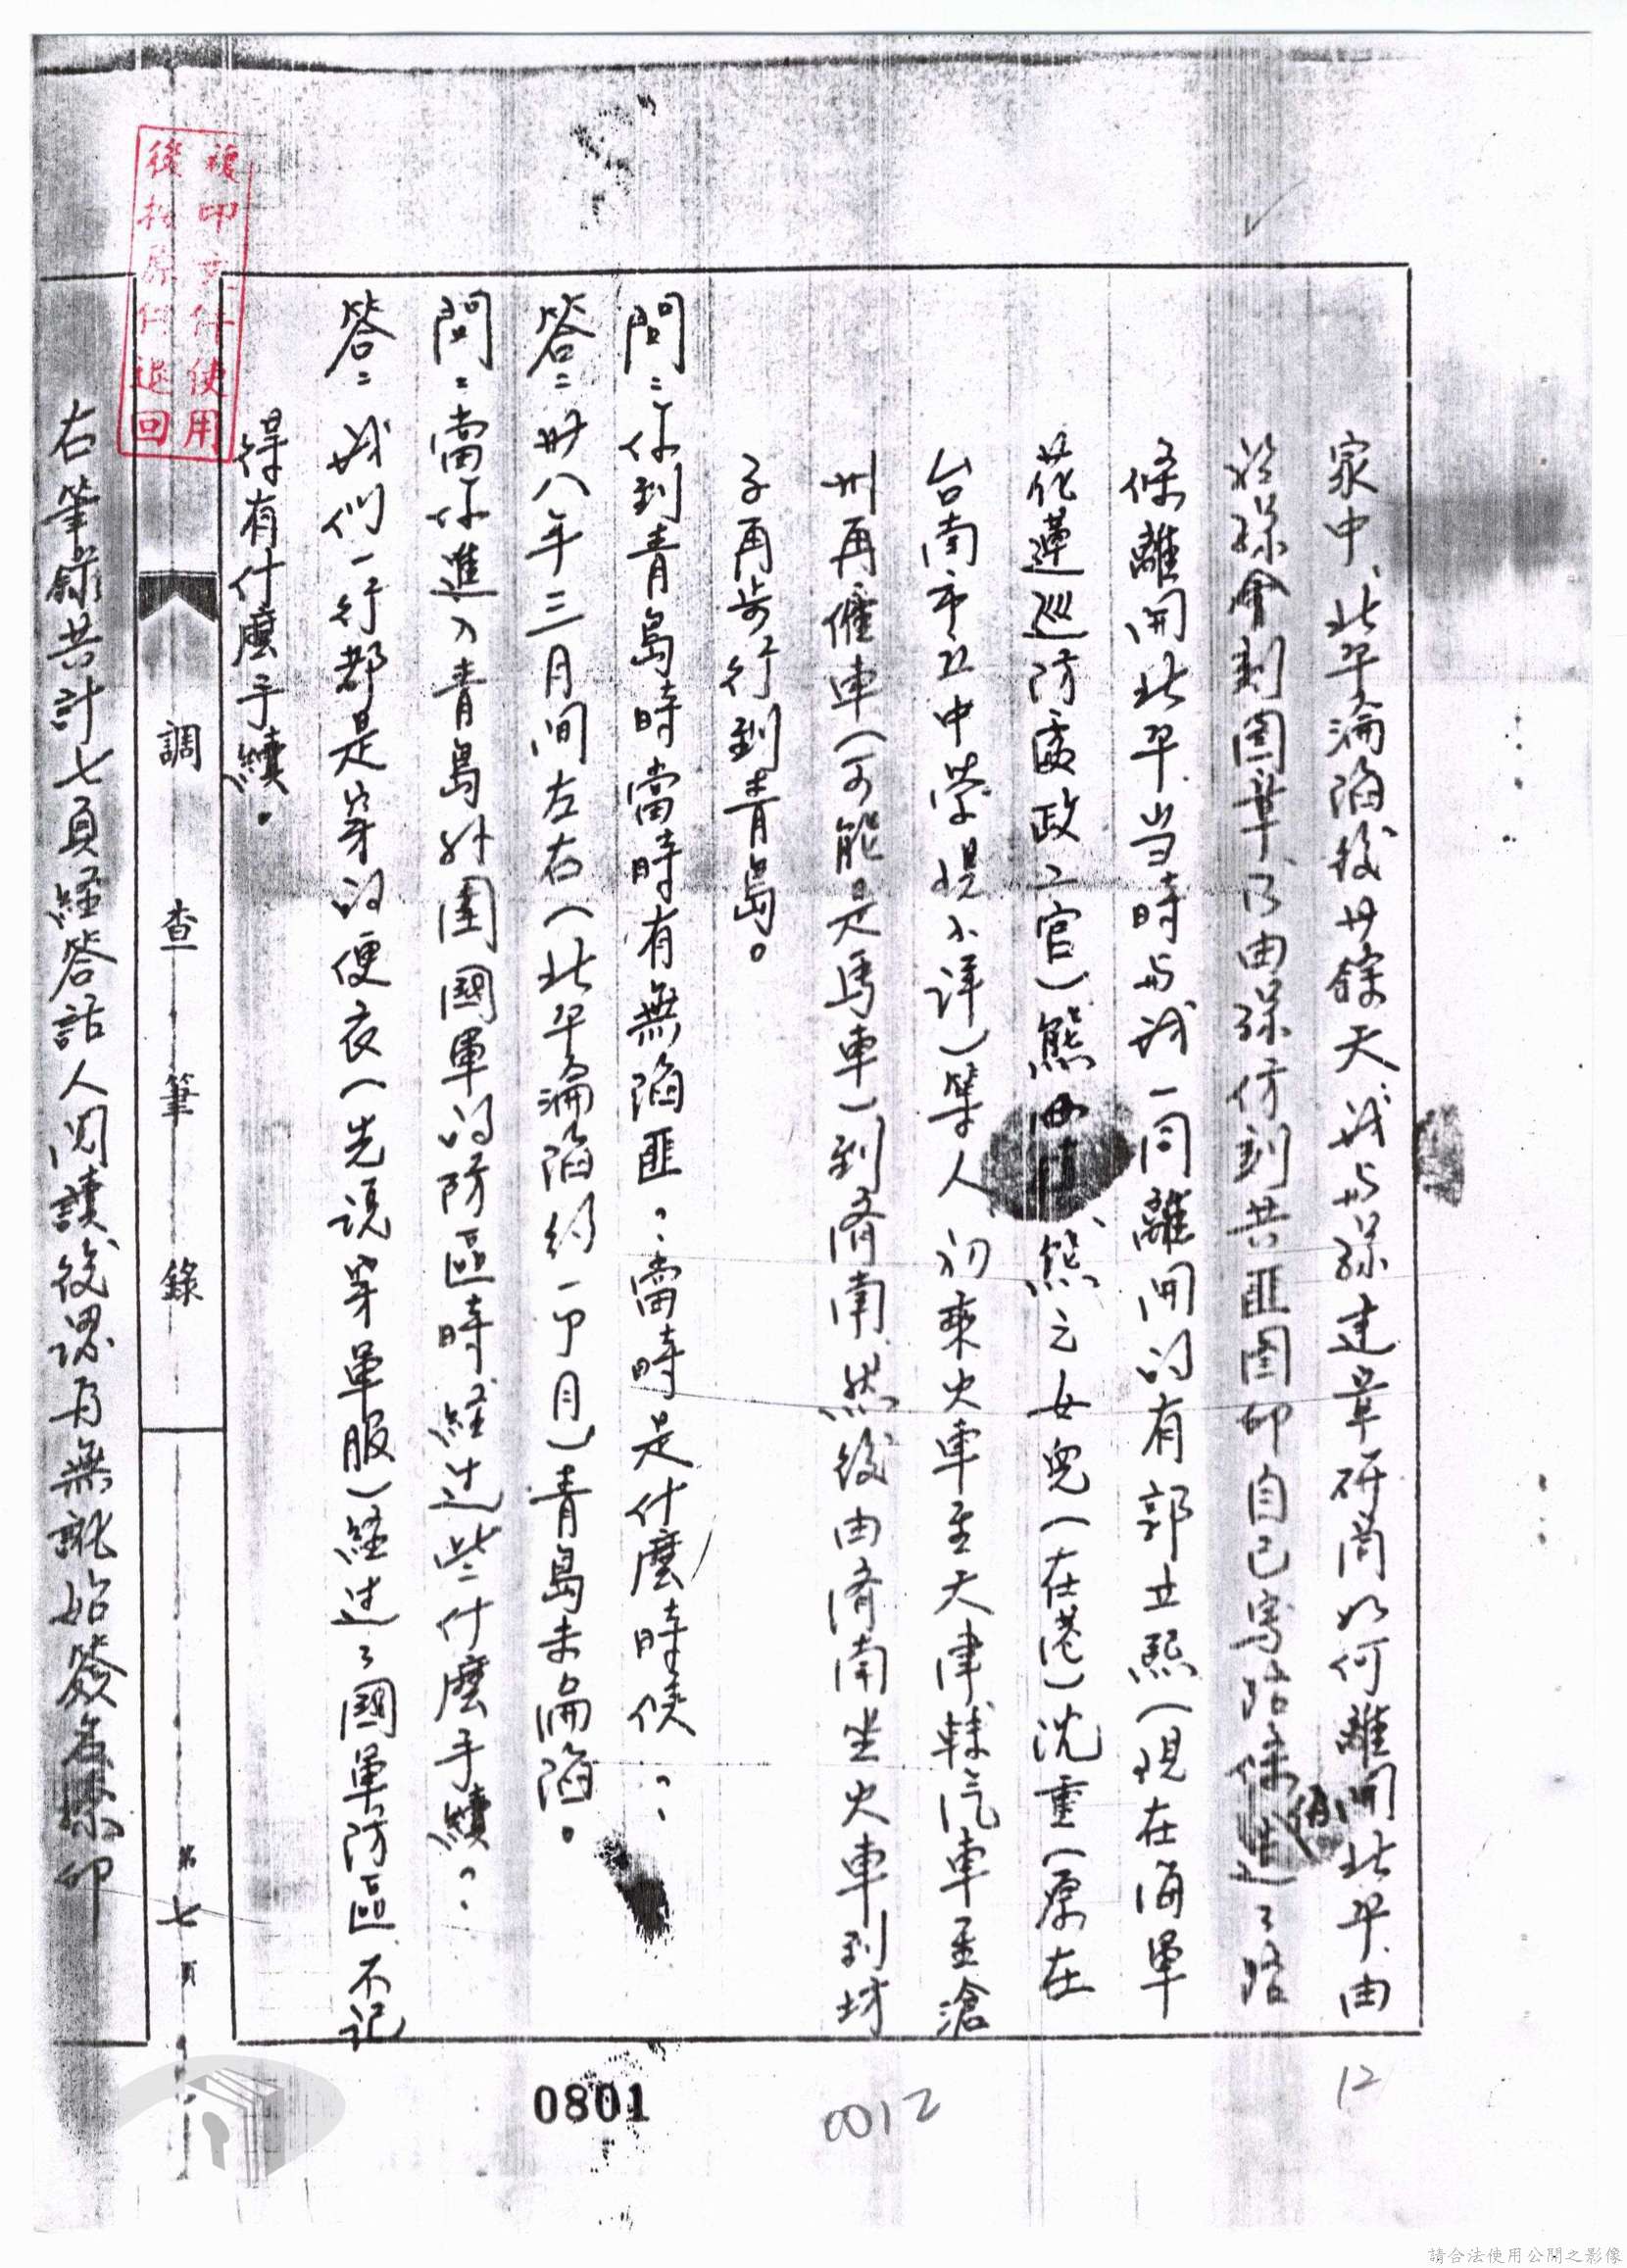 家中、北平淪陷後廿餘天、我与孫建章研商如何離開北平、由
於孫會刻图章、乃由孫仿刻共匪图印自己寫路條造了路
偽
條離開北平、当時与我一同離開的有郭立熙(現在海軍
花蓮巡防處政工官)熊 熊之女兒(在港)沈重(原在
台南市立中學現不詳)等人、初乘火車至天津轉汽車至滄
州再僱車(可能是馬車)到濟南、然後由濟南坐火車到坊
子再步行到青島。
問：你到青島時當時有無陷匪？當時是什麼時候？
答：卅八年三月間左右(北平淪陷約一个月)青島未淪陷。
問：當你進入青島外圍國軍的防區時、經过些什麼手續？
答：我们一行都是穿的便衣(先说穿軍服)經过了國軍防區、不记
得有什麼手續。
調查筆錄
第七頁
右筆錄共計七頁經答話人閱讀後認為無訛始簽名捺印
複印文件使用
後按原件退回
0801
0012
12
請合法使用公開之影像